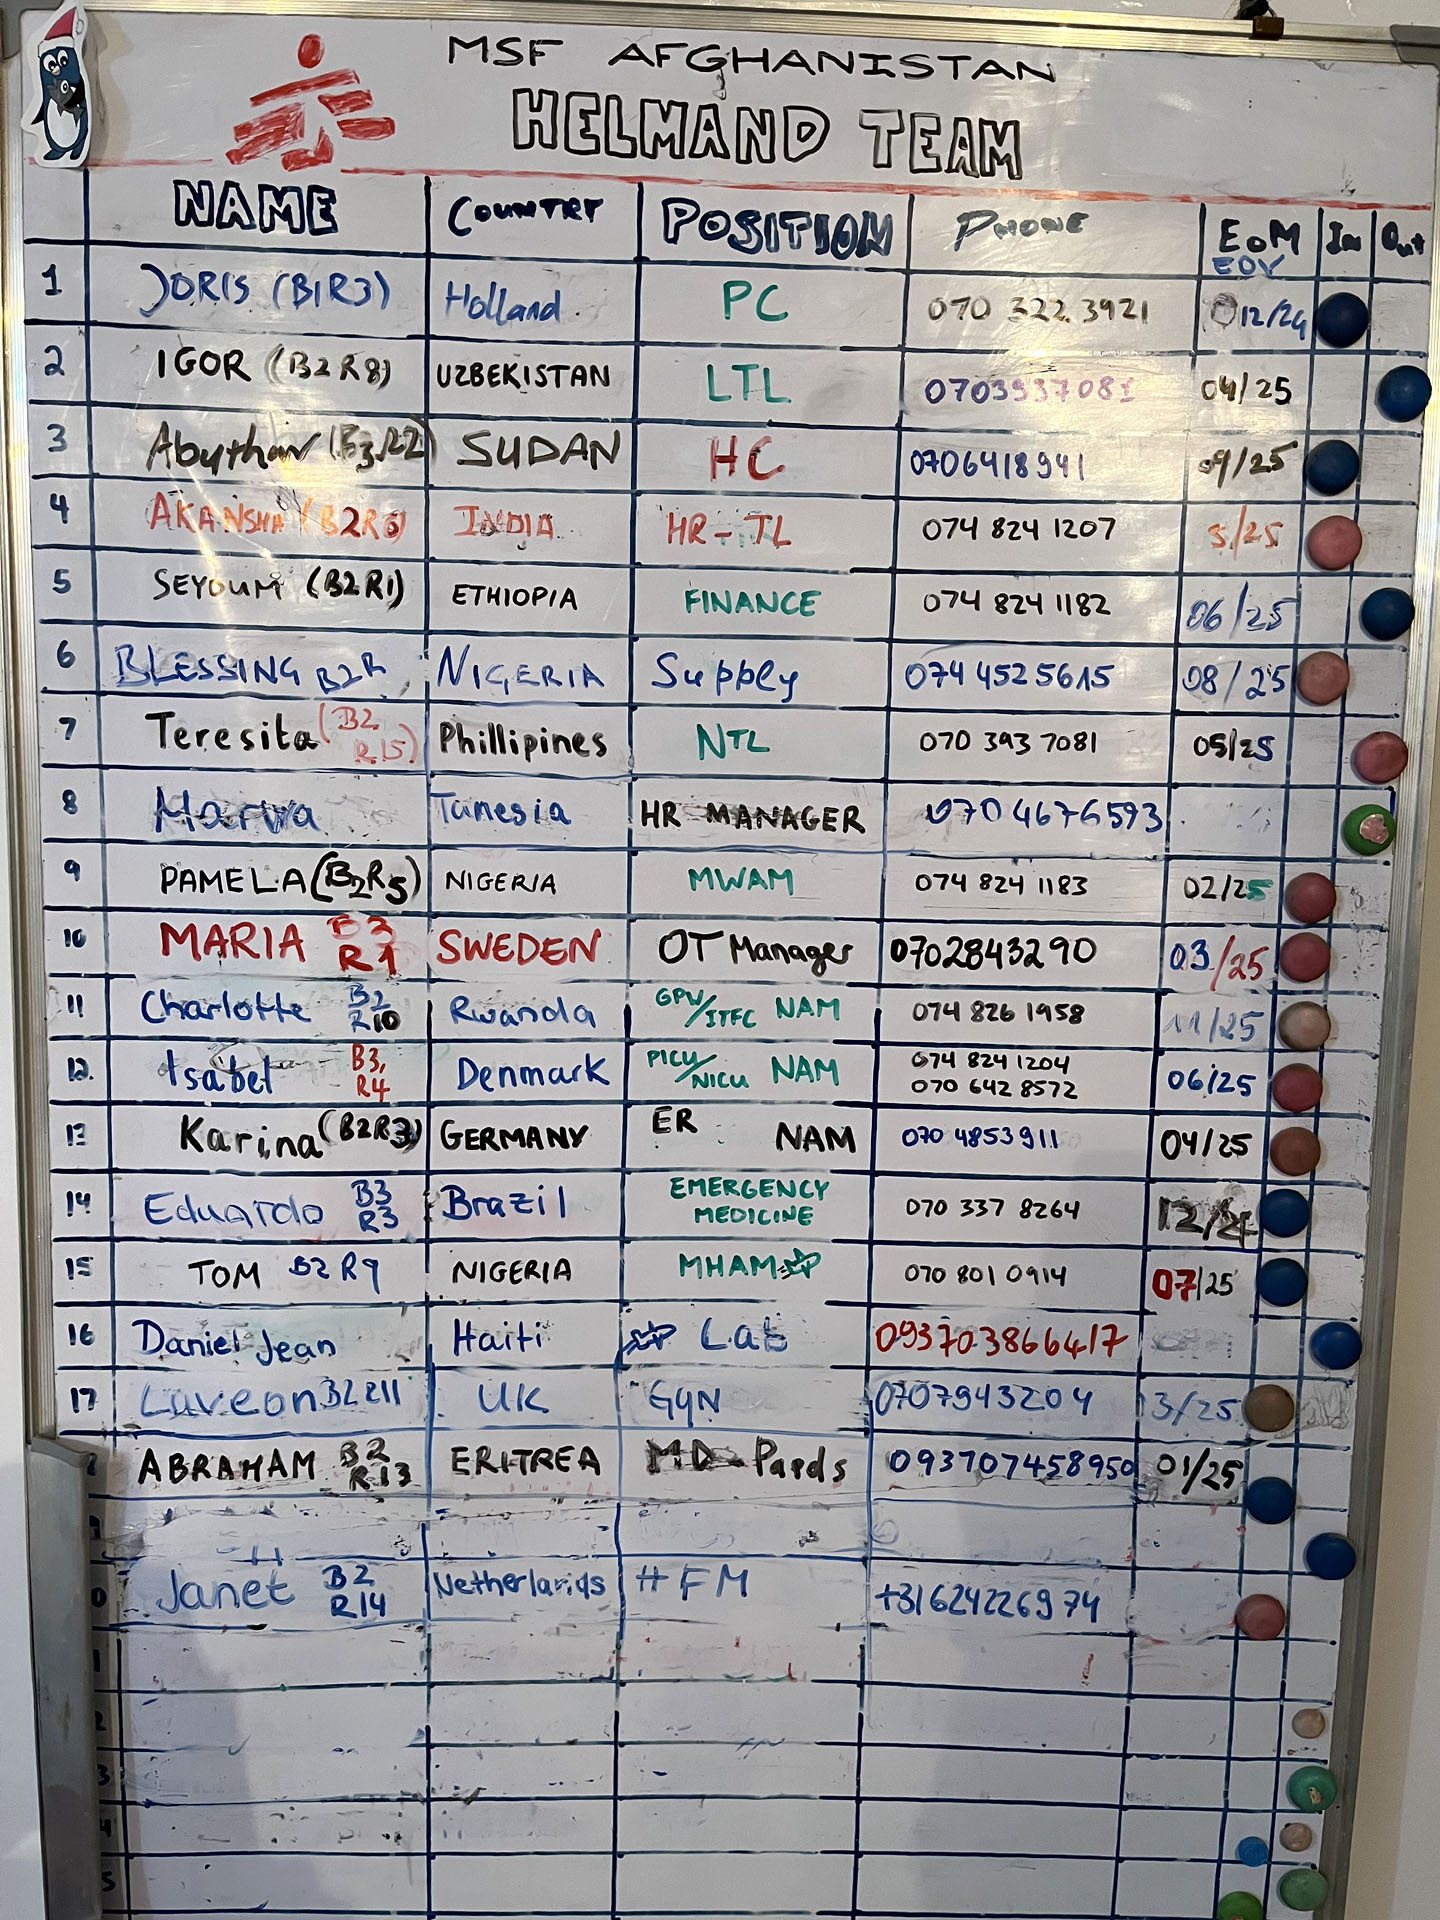 MSF AFGHANISTAN
HELMAND TEAM
NAME COUNTRY POSITION PHONE EOM In Out
EOV
1 JORIS (B1R3) Holland PC 070 322 3921 12/24
2 IGOR (B2R8) UZBEKISTAN LTL 0703937081 04/25
3 Abuthar (B3,R2) SUDAN HC 0706418941 09/25
4 AKANSHA (B2R6) INDIA HR-TL 074 824 1207 5/25
5 SEYOUM (B2R1) ETHIOPIA FINANCE 074 824 1182 06/25
6 BLESSING B2R NIGERIA Supply 074 4525615 08/25
7 Teresita (B2 R15) Phillipines NTL 070 393 7081 05/25
8 Marwa Tunesia HR MANAGER 070 4676593
9 PAMELA (B2R5) NIGERIA MWAM 074 824 1183 02/25
10 MARIA B3 R1 SWEDEN OT Manager 0702843290 03/25
11 Charlotte B2 R10 Rwanda GPW/ITFC NAM 074 826 1958 11/25
12. Isabel B3, R4 Denmark PICU/NICU NAM 074 824 1204
070 642 8572 06/25
13 Karina (B2R3) GERMANY ER NAM 070 4853911 04/25
14 Eduardo B3 R3 Brazil EMERGENCY MEDICINE 070 337 8264 12/24
15 TOM B2 R9 NIGERIA MHAM 070 801 0914 07/25
16 Daniel Jean Haiti Lab 093703866417
17 Laveon B2 R11 UK GYN 0707943204 3/25
ABRAHAM B2 R13 ERITREA MD - Paeds 093707458950 01/25
Janet B2 R14 Netherlands #FM +31624226974